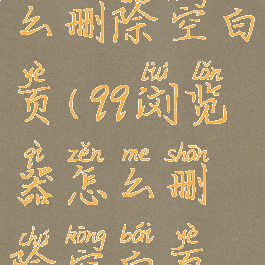 么删除空白
yè liú lǎn
页(99浏览
qì zěn me shān
器怎么删
chú kōng bái yè
除空白页